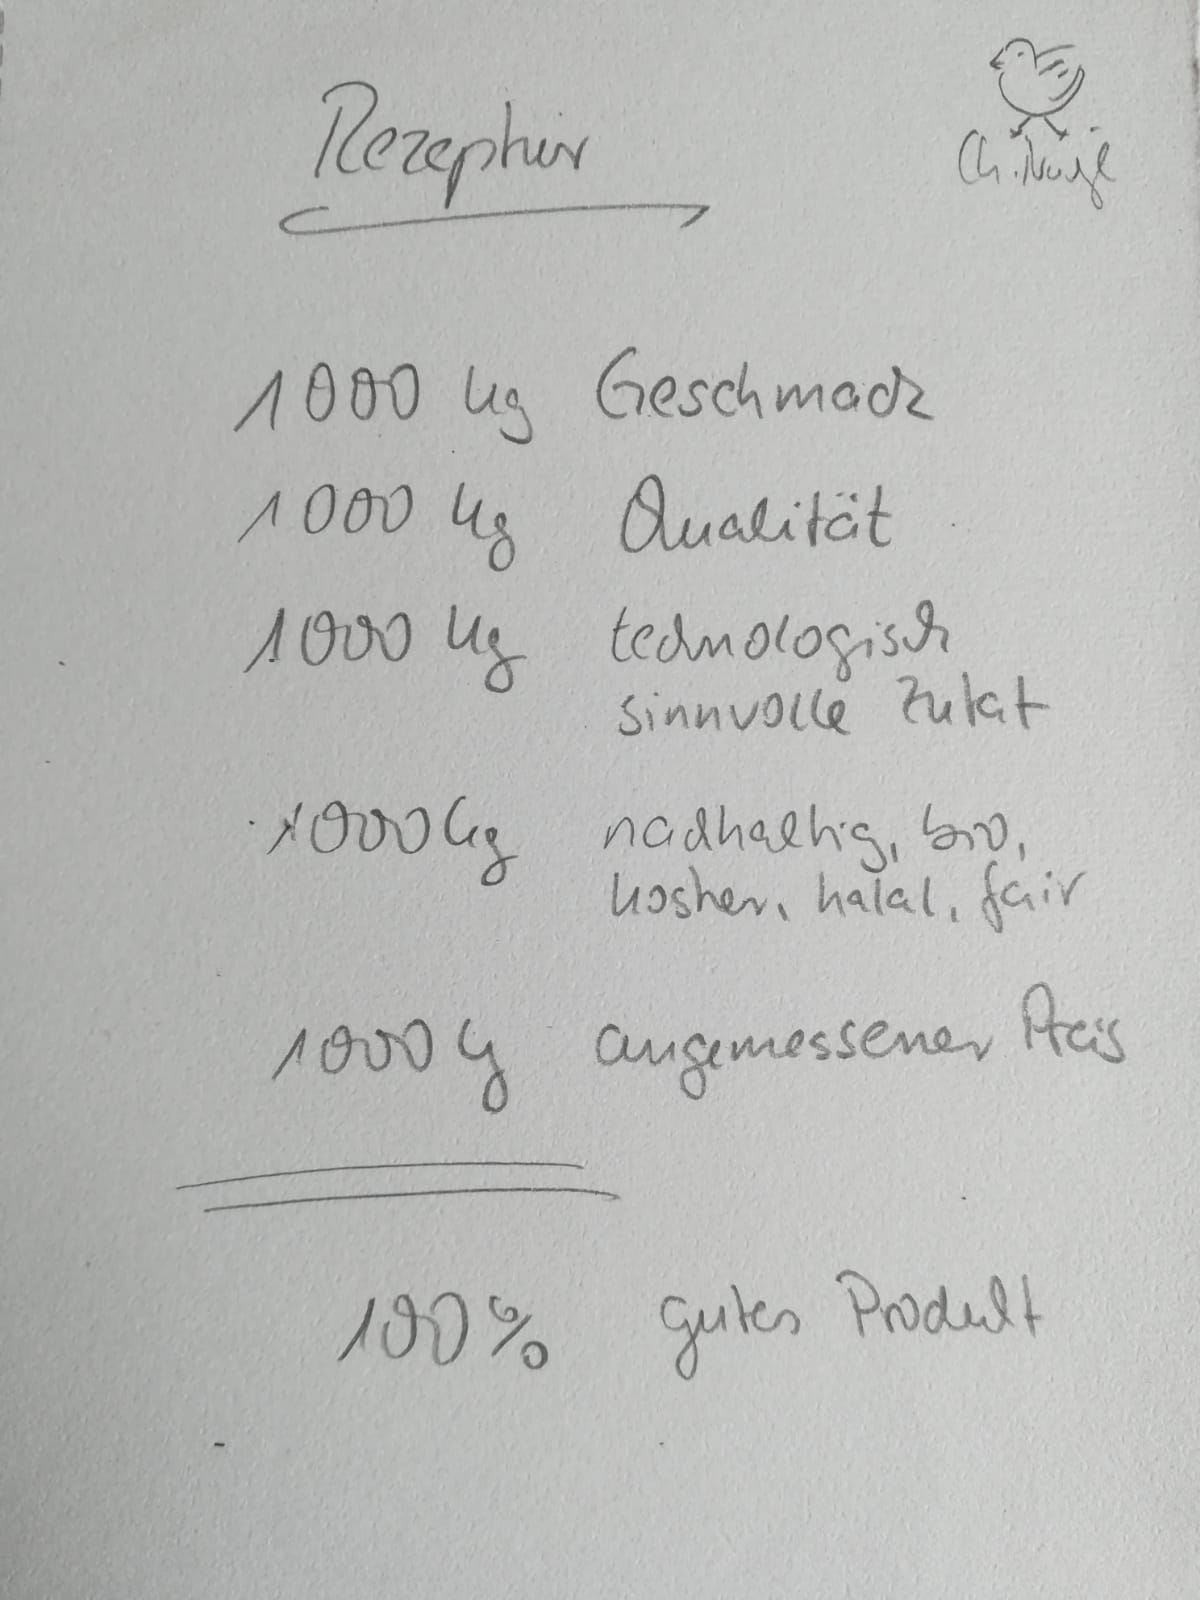 Rezeptur
1000 kg Geschmack
1000 kg Qualität
1000 kg technologisch
sinnvolle Zutat
1000 kg nachhaltig, bio,
kosher, halal, fair
1000 kg angemessener Preis
100% gutes Produkt